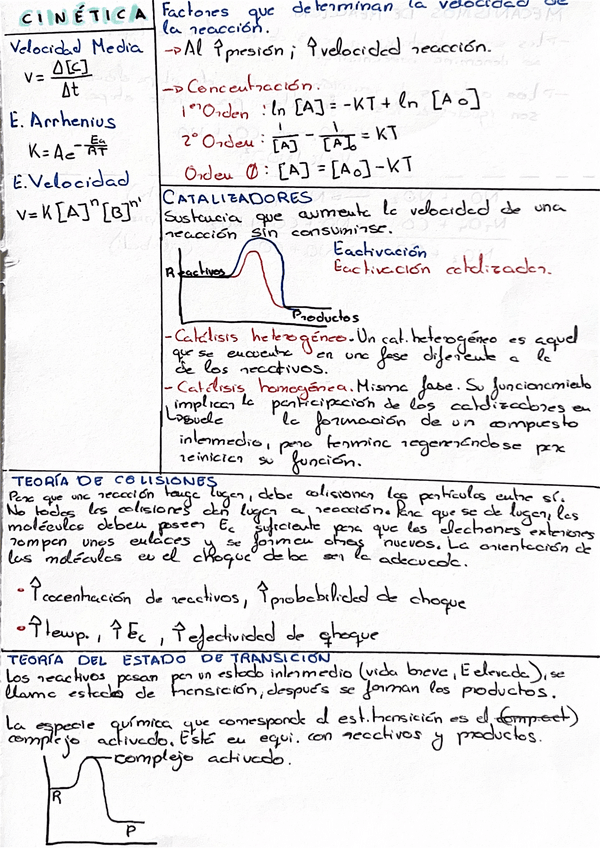 CINÉTICA
Velocidad Media
v = Δ[c] / Δt
E. Arrhenius
K = Ae^-Ea/RT
E. Velocidad
v = K[A]^n [B]^n'
Factores que determinan la velocidad de
la reacción.
→ Al ↑presión; ↑velocidad reacción.
→ Concentración.
1er Orden : ln [A] = -KT + ln [A0]
2º Orden : 1/[A] - 1/[A]0 = KT
Orden Ø : [A] = [A0] - KT
CATALIZADORES
Sustancia que aumenta la velocidad de una
reacción sin consumirse.
Eactivación
Eactivación catalizador.
Reactivos
Productos
- Catálisis heterogénea. Un cat. heterogéneo es aquel
que se encuentra en una fase diferente a la
de los reactivos.
- Catálisis homogénea. Misma fase. Su funcionamiento
implica la participación de los catalizadores en
↳ suele la formación de un compuesto
intermedio, pero termina regenerándose para
reiniciar su función.
TEORÍA DE COLISIONES
Para que una reacción tenga lugar, debe colisionar las partículas entre sí.
No todas las colisiones dan lugar a reacción. Para que se de lugar, las
moléculas deben poseer Ec suficiente para que los electrones exteriores
rompan unos enlaces y se formen otros nuevos. La orientación de
las moléculas en el choque debe ser la adecuada.
• ↑cocentración de reactivos, ↑probabilidad de choque
• ↑temp., ↑Ec, ↑efectividad de choque
TEORÍA DEL ESTADO DE TRANSICIÓN
Los reactivos pasan por un estado intermedio (vida breve, E elevada), se
llama estado de transición, después se forman los productos.
La especie química que corresponde al est. transición es el
complejo activado. Está en equi. con reactivos y productos.
complejo activado.
R
P